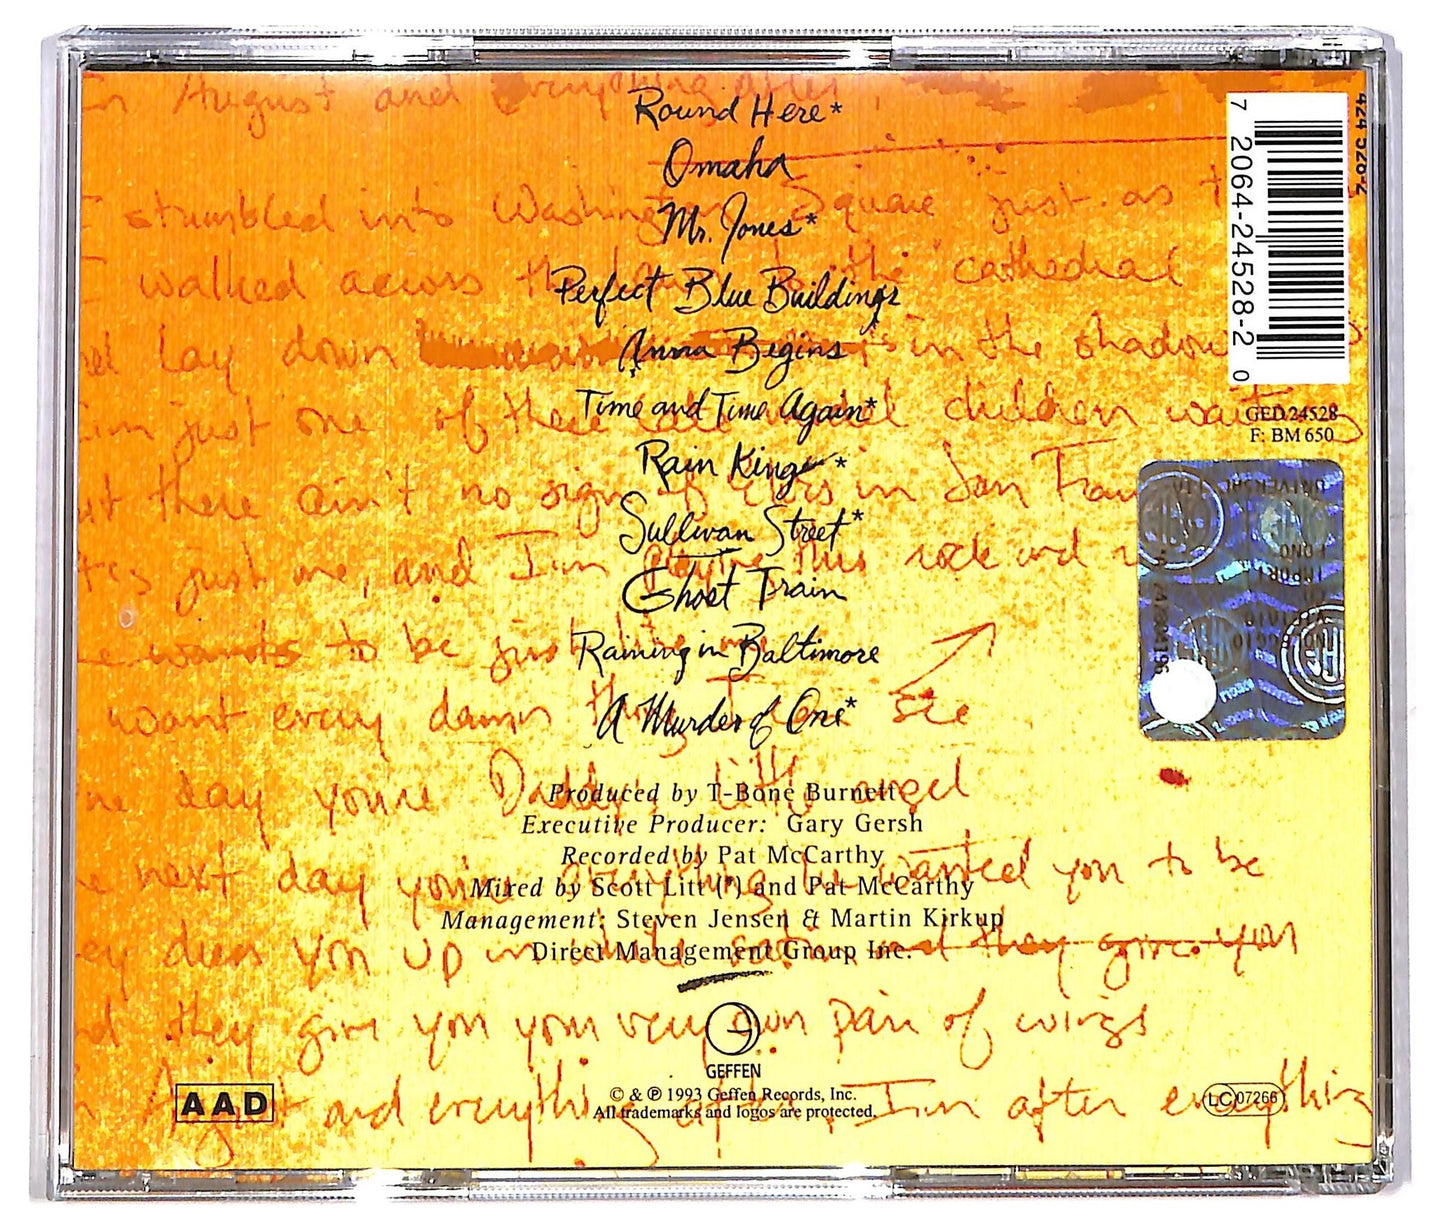 in August and everything after,
Round Here*
Omaha
I stumbled into Washington Square just as t
Mr. Jones*
I walked across the to the cathedral
Perfect Blue Buildings
lay down in the shadow
Anna Begins*
I'm just one of these children waiting
Time and Time Again*
Rain King*
but there ain't no sign of in San Fran
Sullivan Street*
it's just me, and I'm playing this rock and
Ghost Train
wants to be just
Raining in Baltimore
want every damn thing I see
A Murder of One*
one day you're Daddy's little angel
Produced by T-Bone Burnett
Executive Producer: Gary Gersh
Recorded by Pat McCarthy
the next day you're everything he wanted you to be
Mixed by Scott Litt (*) and Pat McCarthy
Management: Steven Jensen & Martin Kirkup
they dress you up in white satin and they give you
Direct Management Group Inc.
and they give you your very own pair of wings
GEFFEN
© & ℗ 1993 Geffen Records, Inc.
All trademarks and logos are protected.
in August and everything after I'm after everything
AAD
LC 07266
424 528-2
7 2064-24528-2 0
GED 24528
F: BM 650